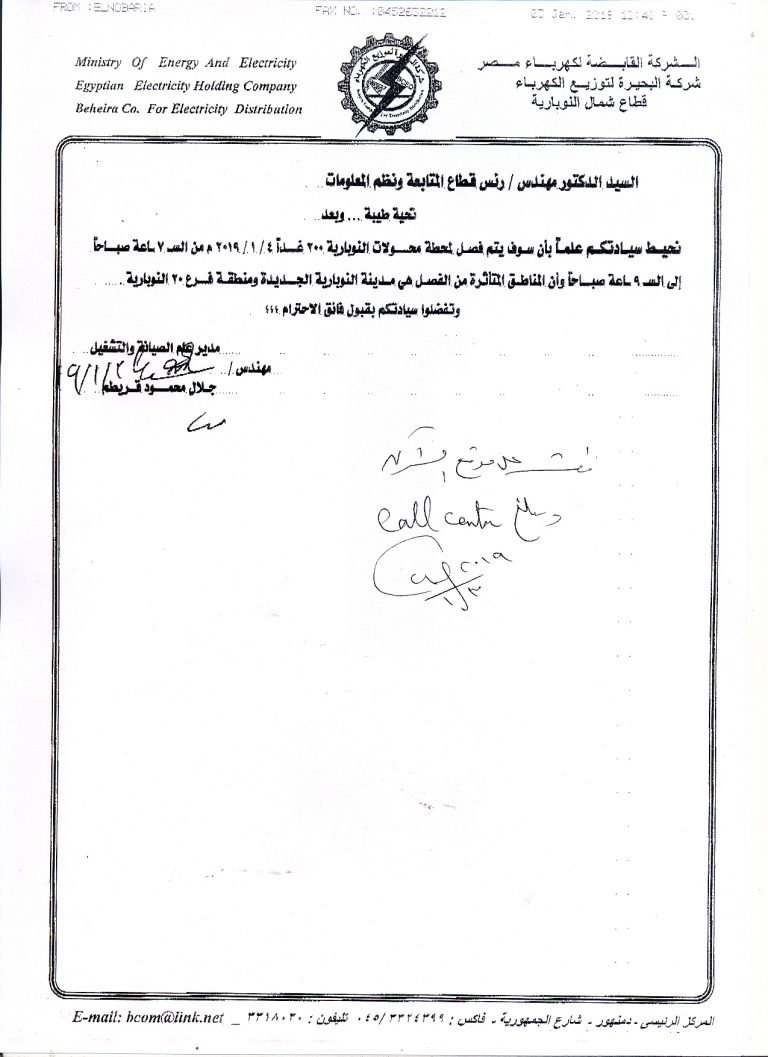 FROM :ELNOBARIA FAX NO. :0452632212 03 Jan. 2019 12:40 P
Ministry Of Energy And Electricity
Egyptian Electricity Holding Company
Beheira Co. For Electricity Distribution
الـشركة القابـضة لكهربـاء مـصر
شركة البحيرة لتوزيـع الكهرباء
قطاع شمال النوبارية
السيد الدكتور مهندس / رئس قطاع المتابعة ونظم المعلومات
تحية طيبة ... وبعد
نحيـط سيادتكـم علمـاً بأن سوف يتم فصل لمحطة محـولات النوبارية ٢٠٠ غـداً ٤ / ١ / ٢٠١٩ م من السـ ٧ـاعة صبـاحاً
إلى السـ ٩ـاعة صبـاحاً وأن المناطق المتأثرة من الفصل هي مدينة النوبارية الجديدة ومنطقـة فـرع ٢٠ النوبارية .....
وتفضلوا سيادتكم بقبول فائق الاحترام ،،،
مدير عام الصيانة والتشغيل
مهندس /
جلال محمـود قريطم
call centre
٢٠١٩
E-mail: bcom@link.net _ المركز الرئيسى - دمنهور - شارع الجمهورية - فاكس : ٠٤٥/٣٣٢٤٣٩٩ تليفون : ٣٣١٨٠٣٠